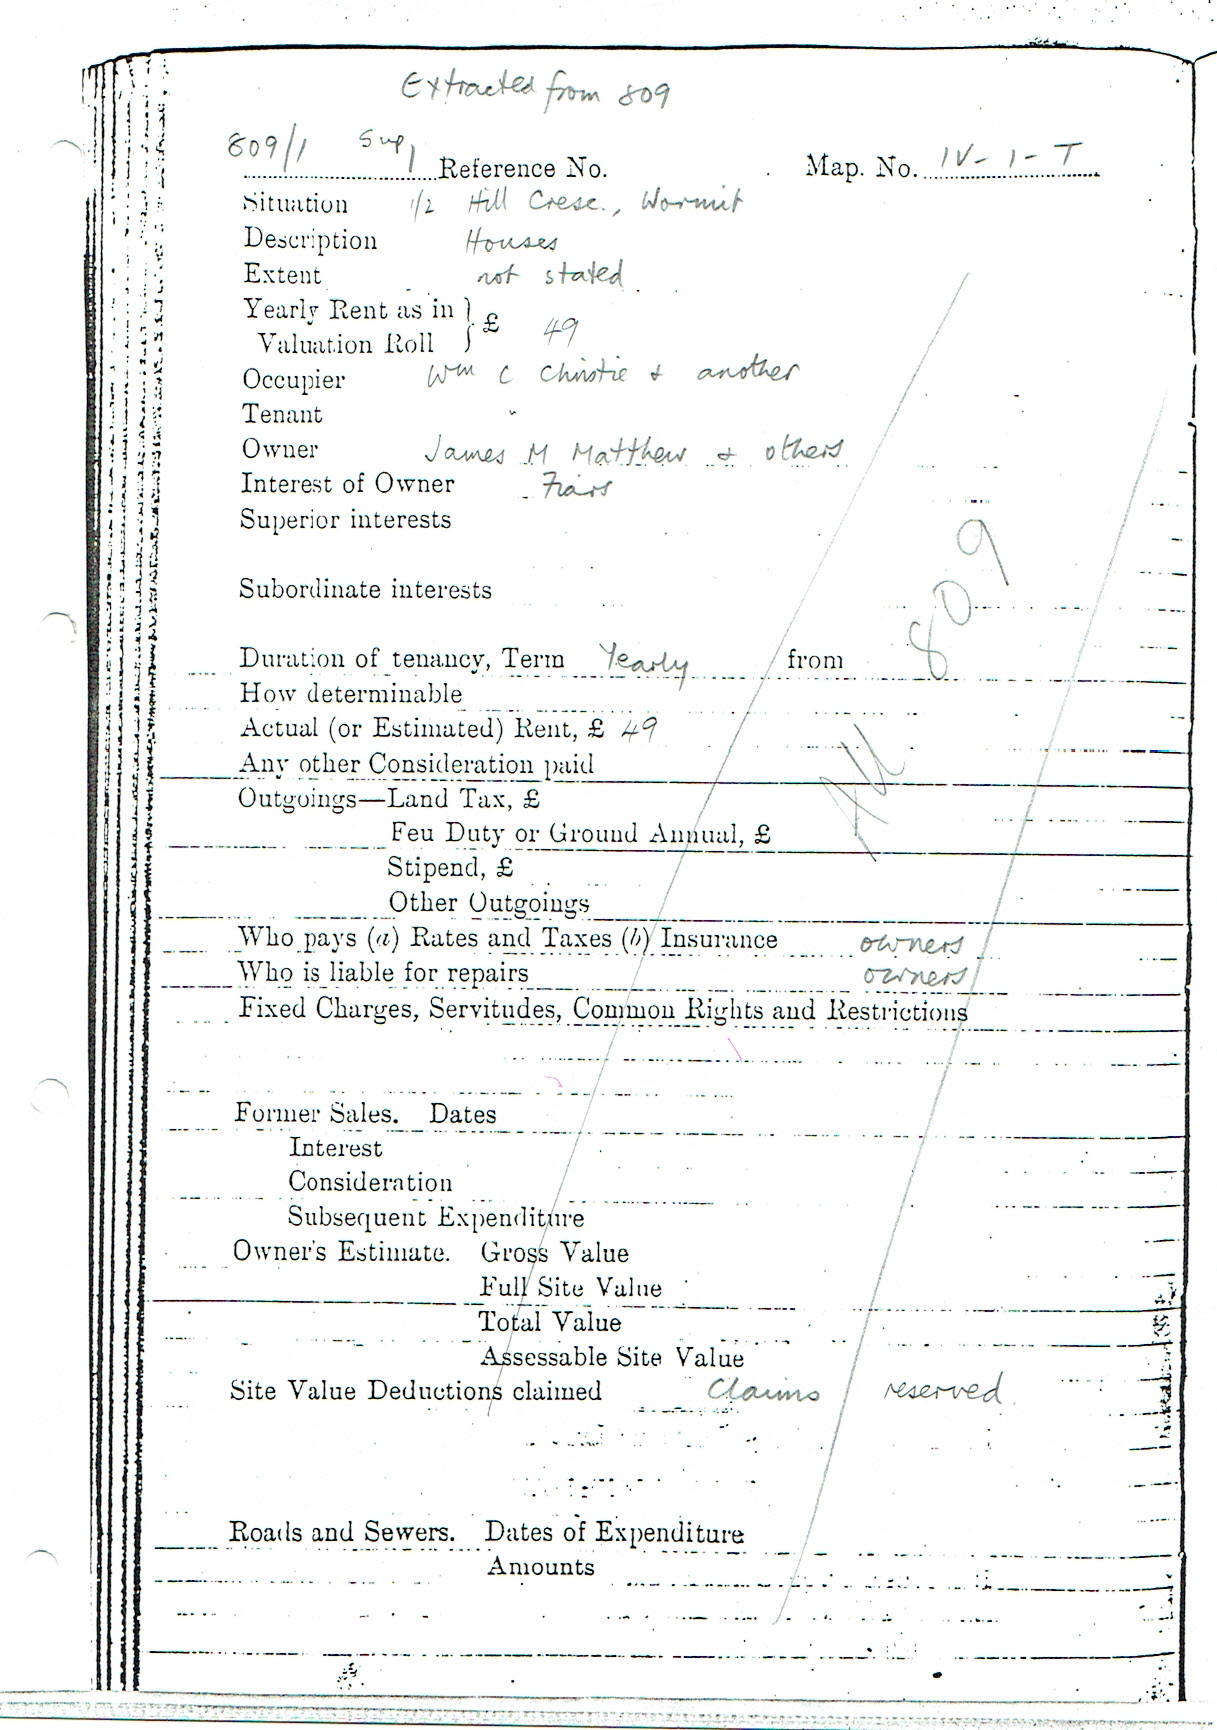 Extracted from 809
809/1 Sup, Reference No. Map. No. IV - 1 - T
Situation 1/2 Hill Cresc., Wormit
Description Houses
Extent not stated
Yearly Rent as in
Valuation Roll } £ 49
Occupier Wm C Christie & another
Tenant "
Owner James M Matthew & others
Interest of Owner Fiars
Superior interests
Subordinate interests
Duration of tenancy, Term Yearly from
How determinable
Actual (or Estimated) Rent, £ 49
Any other Consideration paid
Outgoings—Land Tax, £
Feu Duty or Ground Annual, £
Stipend, £
Other Outgoings
Who pays (a) Rates and Taxes (b) Insurance owners
Who is liable for repairs owners
Fixed Charges, Servitudes, Common Rights and Restrictions
Former Sales. Dates
Interest
Consideration
Subsequent Expenditure
Owner's Estimate. Gross Value
Full Site Value
Total Value
Assessable Site Value
Site Value Deductions claimed Claims reserved
Roads and Sewers. Dates of Expenditure
Amounts
All 809